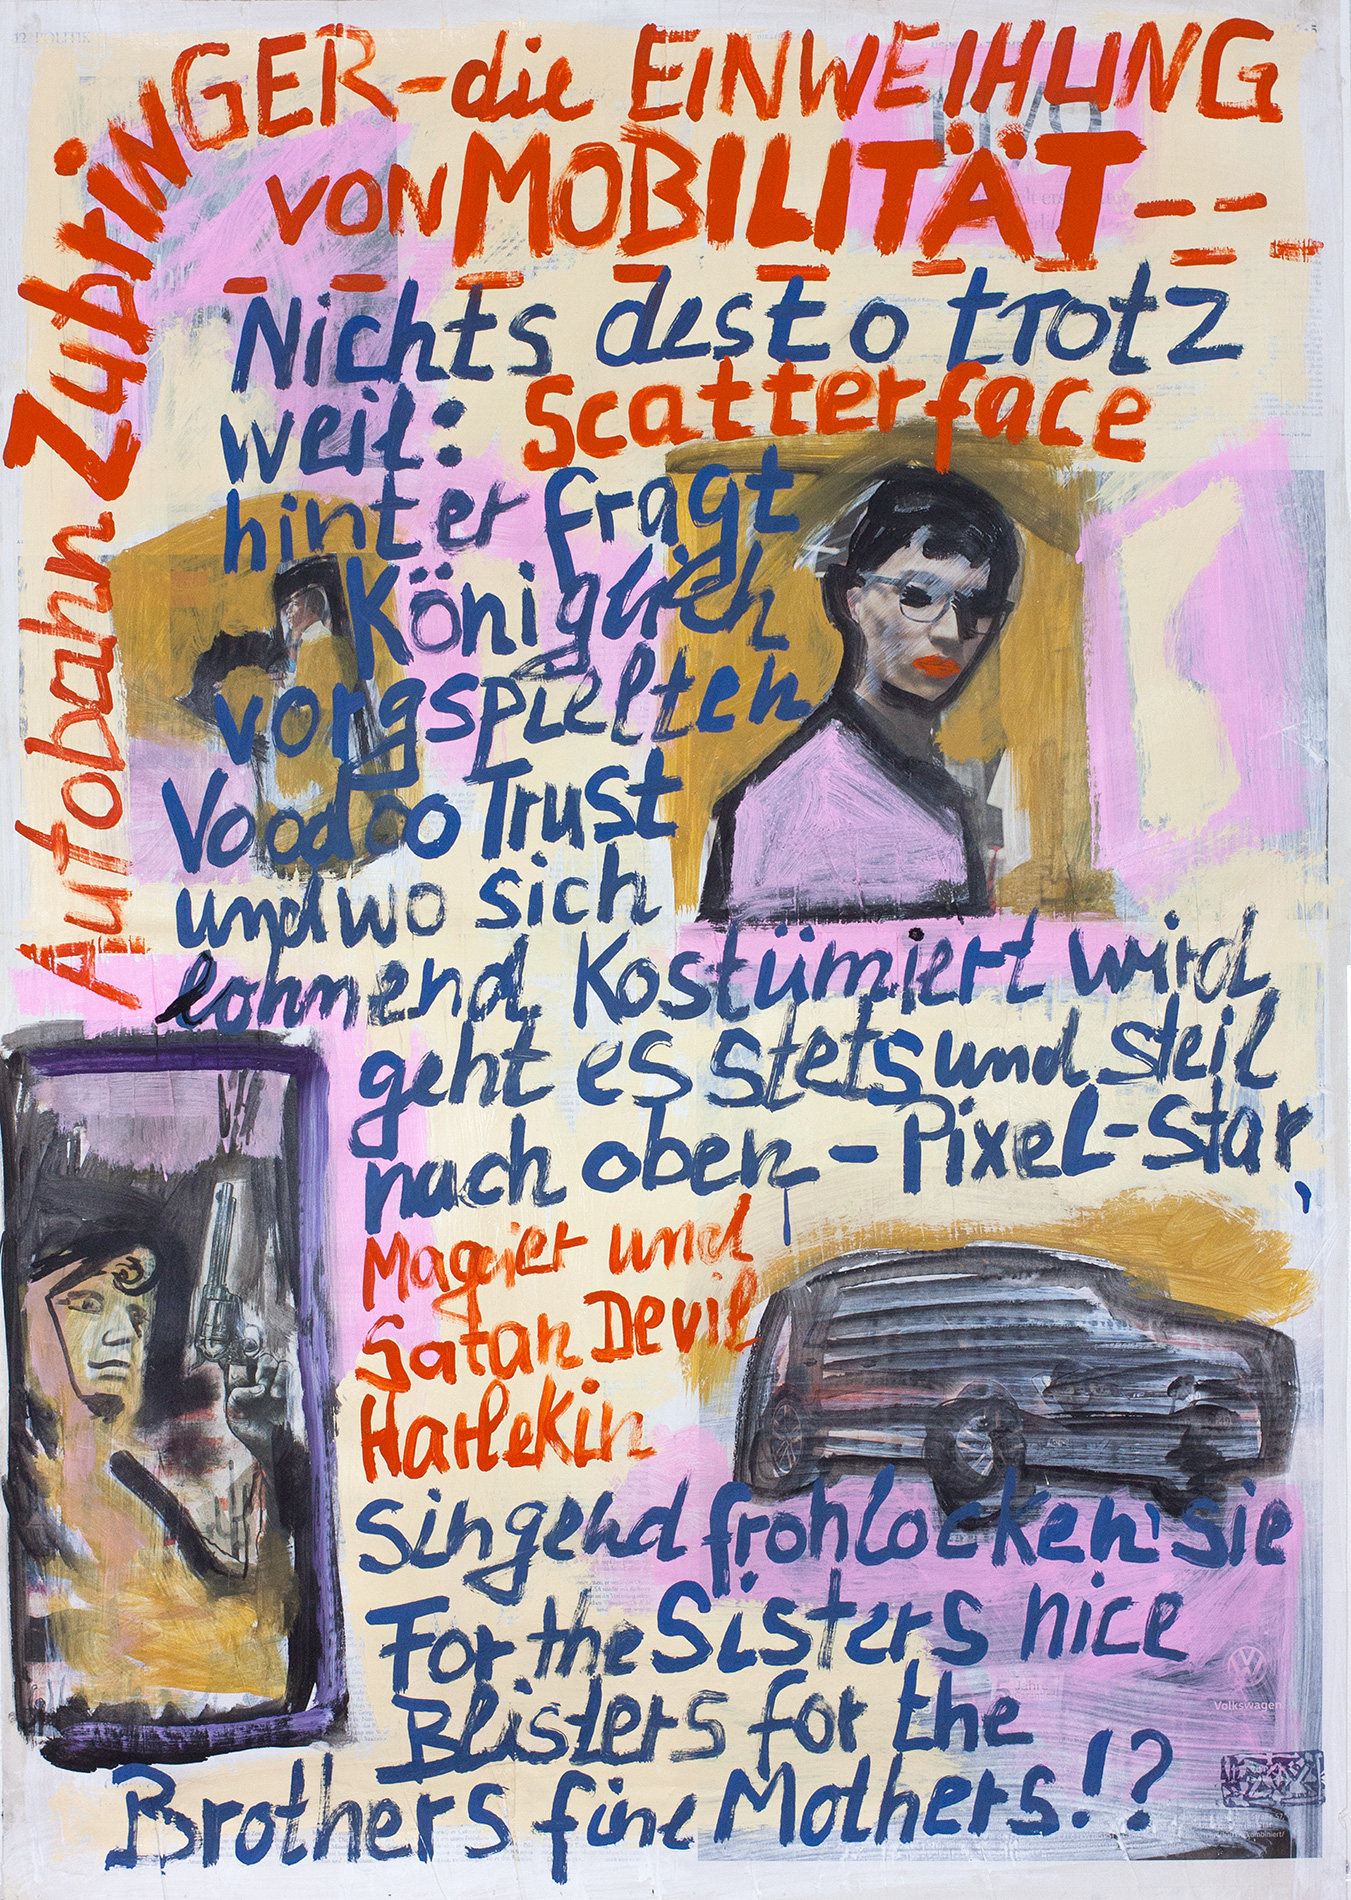 Autobahn ZubrinGER - die EINWEIHUNG
VON MOBILITÄT - - -
Nichts dest o trotz
weil: Scatterface
hinter fragt
Königlich
vorgspielten
Voodoo Trust
und wo sich
lohnend Kostümiert wird
geht es stets und steil
nach oben - Pixel-Star,
Magier und
Satan Devil
Harlekin
Singend frohlocken sie
For the Sisters nice
Blisters for the
Brothers fine Mothers!?
12 POLITIK
Volkswagen